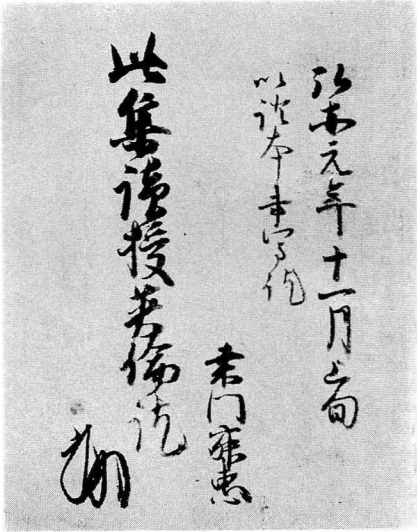 弘安元年十一月上旬
以証本書写訖
桑門寂恵
此集読授英倫訖